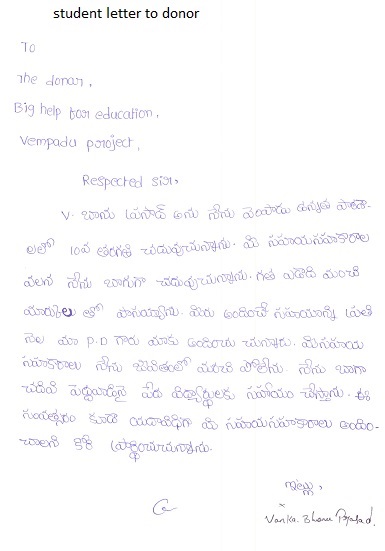 student letter to donor
To
The donar,
Big help for education,
Vempadu project,
Respected sir,
V. భాను ప్రసాద్ అను నేను వెంపాడు ఉన్నత పాఠశా-
లలో 10వ తరగతి చదువుచున్నాను. మీ సహాయసహకారాల
వలన నేను బాగుగా చదువుచున్నాను. గత ఏడాది మంచి
మార్కులు తో పాసయ్యాను. మీరు అందించే సహాయాన్ని ప్రతి
నెల మా P.D గారు మాకు అందించు చున్నారు. మీ సహాయ
సహకారాలు నేను జీవితంలో మరచి పోలేను. నేను బాగా
చదివి పెద్దవాడినై పేద విద్యార్థులకు సహాయం చేస్తాను. ఈ
సంవత్సరం కూడా యదావిధిగా మీ సహాయసహకారాలు అందిం-
చాలని కోరి ప్రార్థించుచున్నాను.
ఇట్లు,
Vanka. Bhanu Prasad.